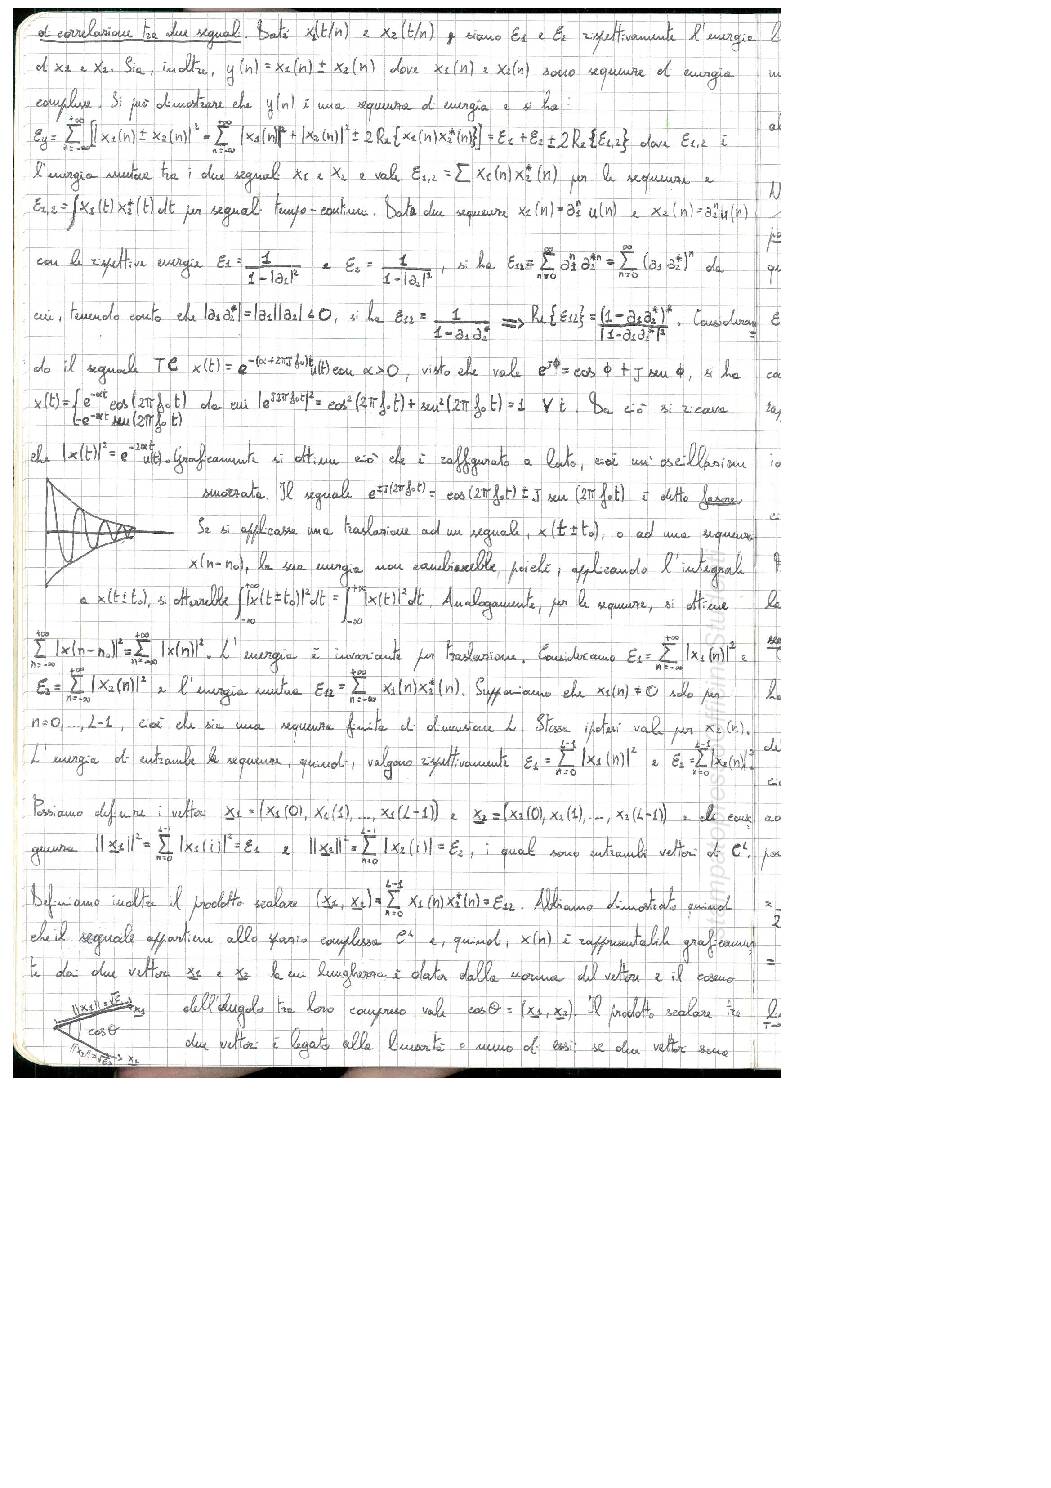 di correlazione tra due segnali. Dati x1(t/n) e x2(t/n), siano ε1 e ε2 rispettivamente l'energia
di x1 e x2. Sia, inoltre, y(n) = x1(n) ± x2(n) dove x1(n) e x2(n) sono sequenze di energia
complesse. Si può dimostrare che y(n) è una sequenza di energia e si ha:
εy = Σ_{n=-∞}^{+∞} [|x1(n) ± x2(n)|² = Σ_{n=-∞}^{+∞} |x1(n)|² + |x2(n)|² ± 2Re{x1(n)x2*(n)}] = ε1 + ε2 ± 2Re{ε1,2} dove ε1,2 è
l'energia mutua tra i due segnali x1 e x2 e vale ε1,2 = Σ x1(n) x2*(n) per le sequenze e
ε1,2 = ∫ x1(t) x2*(t) dt per segnali tempo-continui. Data due sequenze x1(n) = a1ⁿ u(n) e x2(n) = a2ⁿ u(n)
con le rispettive energie ε1 = 1/(1-|a1|²) e ε2 = 1/(1-|a2|²), si ha ε12 = Σ_{n=0}^{∞} a1ⁿ a2*ⁿ = Σ_{n=0}^{∞} (a1 a2*)ⁿ da
cui, tenendo conto che |a1a2*| = |a1||a2| < 0, si ha ε12 = 1/(1-a1a2*) => Re{ε12} = (1-a1a2*)*/|1-a1a2*|². Consideran
do il segnale TC x(t) = e^{-(α+2πJf0)t} u(t) con α>0, visto che vale e^{Jϕ} = cos ϕ + J sen ϕ, si ha
x(t) = { e^{-αt} cos(2πf0t) da cui |e^{J2πf0t}|² = cos²(2πf0t) + sen²(2πf0t) = 1 ∀ t. Da ciò si ricava
-e^{-αt} sen(2πf0t)
che |x(t)|² = e^{-2αt} u(t). Graficamente si ottiene ciò che è raffigurato a lato, cioè un'oscillazione
smorzata. Il segnale e^{±J(2πf0t)} = cos(2πf0t) ± J sen(2πf0t) è detto fasore.
Se si applicasse una traslazione ad un segnale, x(t±t0), o ad una sequenza
x(n-n0), la sua energia non cambierebbe, poiché, applicando l'integrale
a x(t±t0), si otterrebbe ∫_{-∞}^{+∞} |x(t±t0)|² dt = ∫_{-∞}^{+∞} |x(t)|² dt. Analogamente, per le sequenze, si ottiene
Σ_{n=-∞}^{+∞} |x(n-n0)|² = Σ_{n=-∞}^{+∞} |x(n)|². L'energia è invariante per traslazione. Consideriamo ε1 = Σ_{n=-∞}^{+∞} |x1(n)|² e
ε2 = Σ_{n=-∞}^{+∞} |x2(n)|² e l'energia mutua ε12 = Σ_{n=-∞}^{+∞} x1(n)x2*(n). Supponiamo che x1(n) ≠ 0 solo per
n=0,..., L-1, cioè che sia una sequenza finita di dimensione L. Stessa ipotesi vale per x2(n).
L'energia di entrambe le sequenze, quindi, valgono rispettivamente ε1 = Σ_{n=0}^{L-1} |x1(n)|² e ε1 = Σ_{n=0}^{L-1} |x2(n)|².
Possiamo definire i vettori x1 = (x1(0), x1(1), ..., x1(L-1)) e x2 = (x2(0), x2(1), ..., x2(L-1)) e di conse
guenza ||x1||² = Σ_{n=0}^{L-1} |x1(i)|² = ε1 e ||x2||² = Σ_{n=0}^{L-1} |x2(i)| = ε2, i quali sono entrambi vettori di C^L.
Definiamo inoltre il prodotto scalare (x1, x2) = Σ_{n=0}^{L-1} x1(n)x2*(n) = ε12. Abbiamo dimostrato quindi
che il segnale appartiene allo spazio complesso C^L e, quindi, x(n) è rappresentabile graficamen
te dai due vettori x1 e x2 la cui lunghezza è data dalla norma del vettore e il coseno
dell'angolo tra loro compreso vale cosθ = (x1, x2). Il prodotto scalare tra
due vettori è legato alla linearità o meno di essi: se due vettori sono
||x1|| = √ε1 x1
cosθ
||x2|| = √ε2 x2